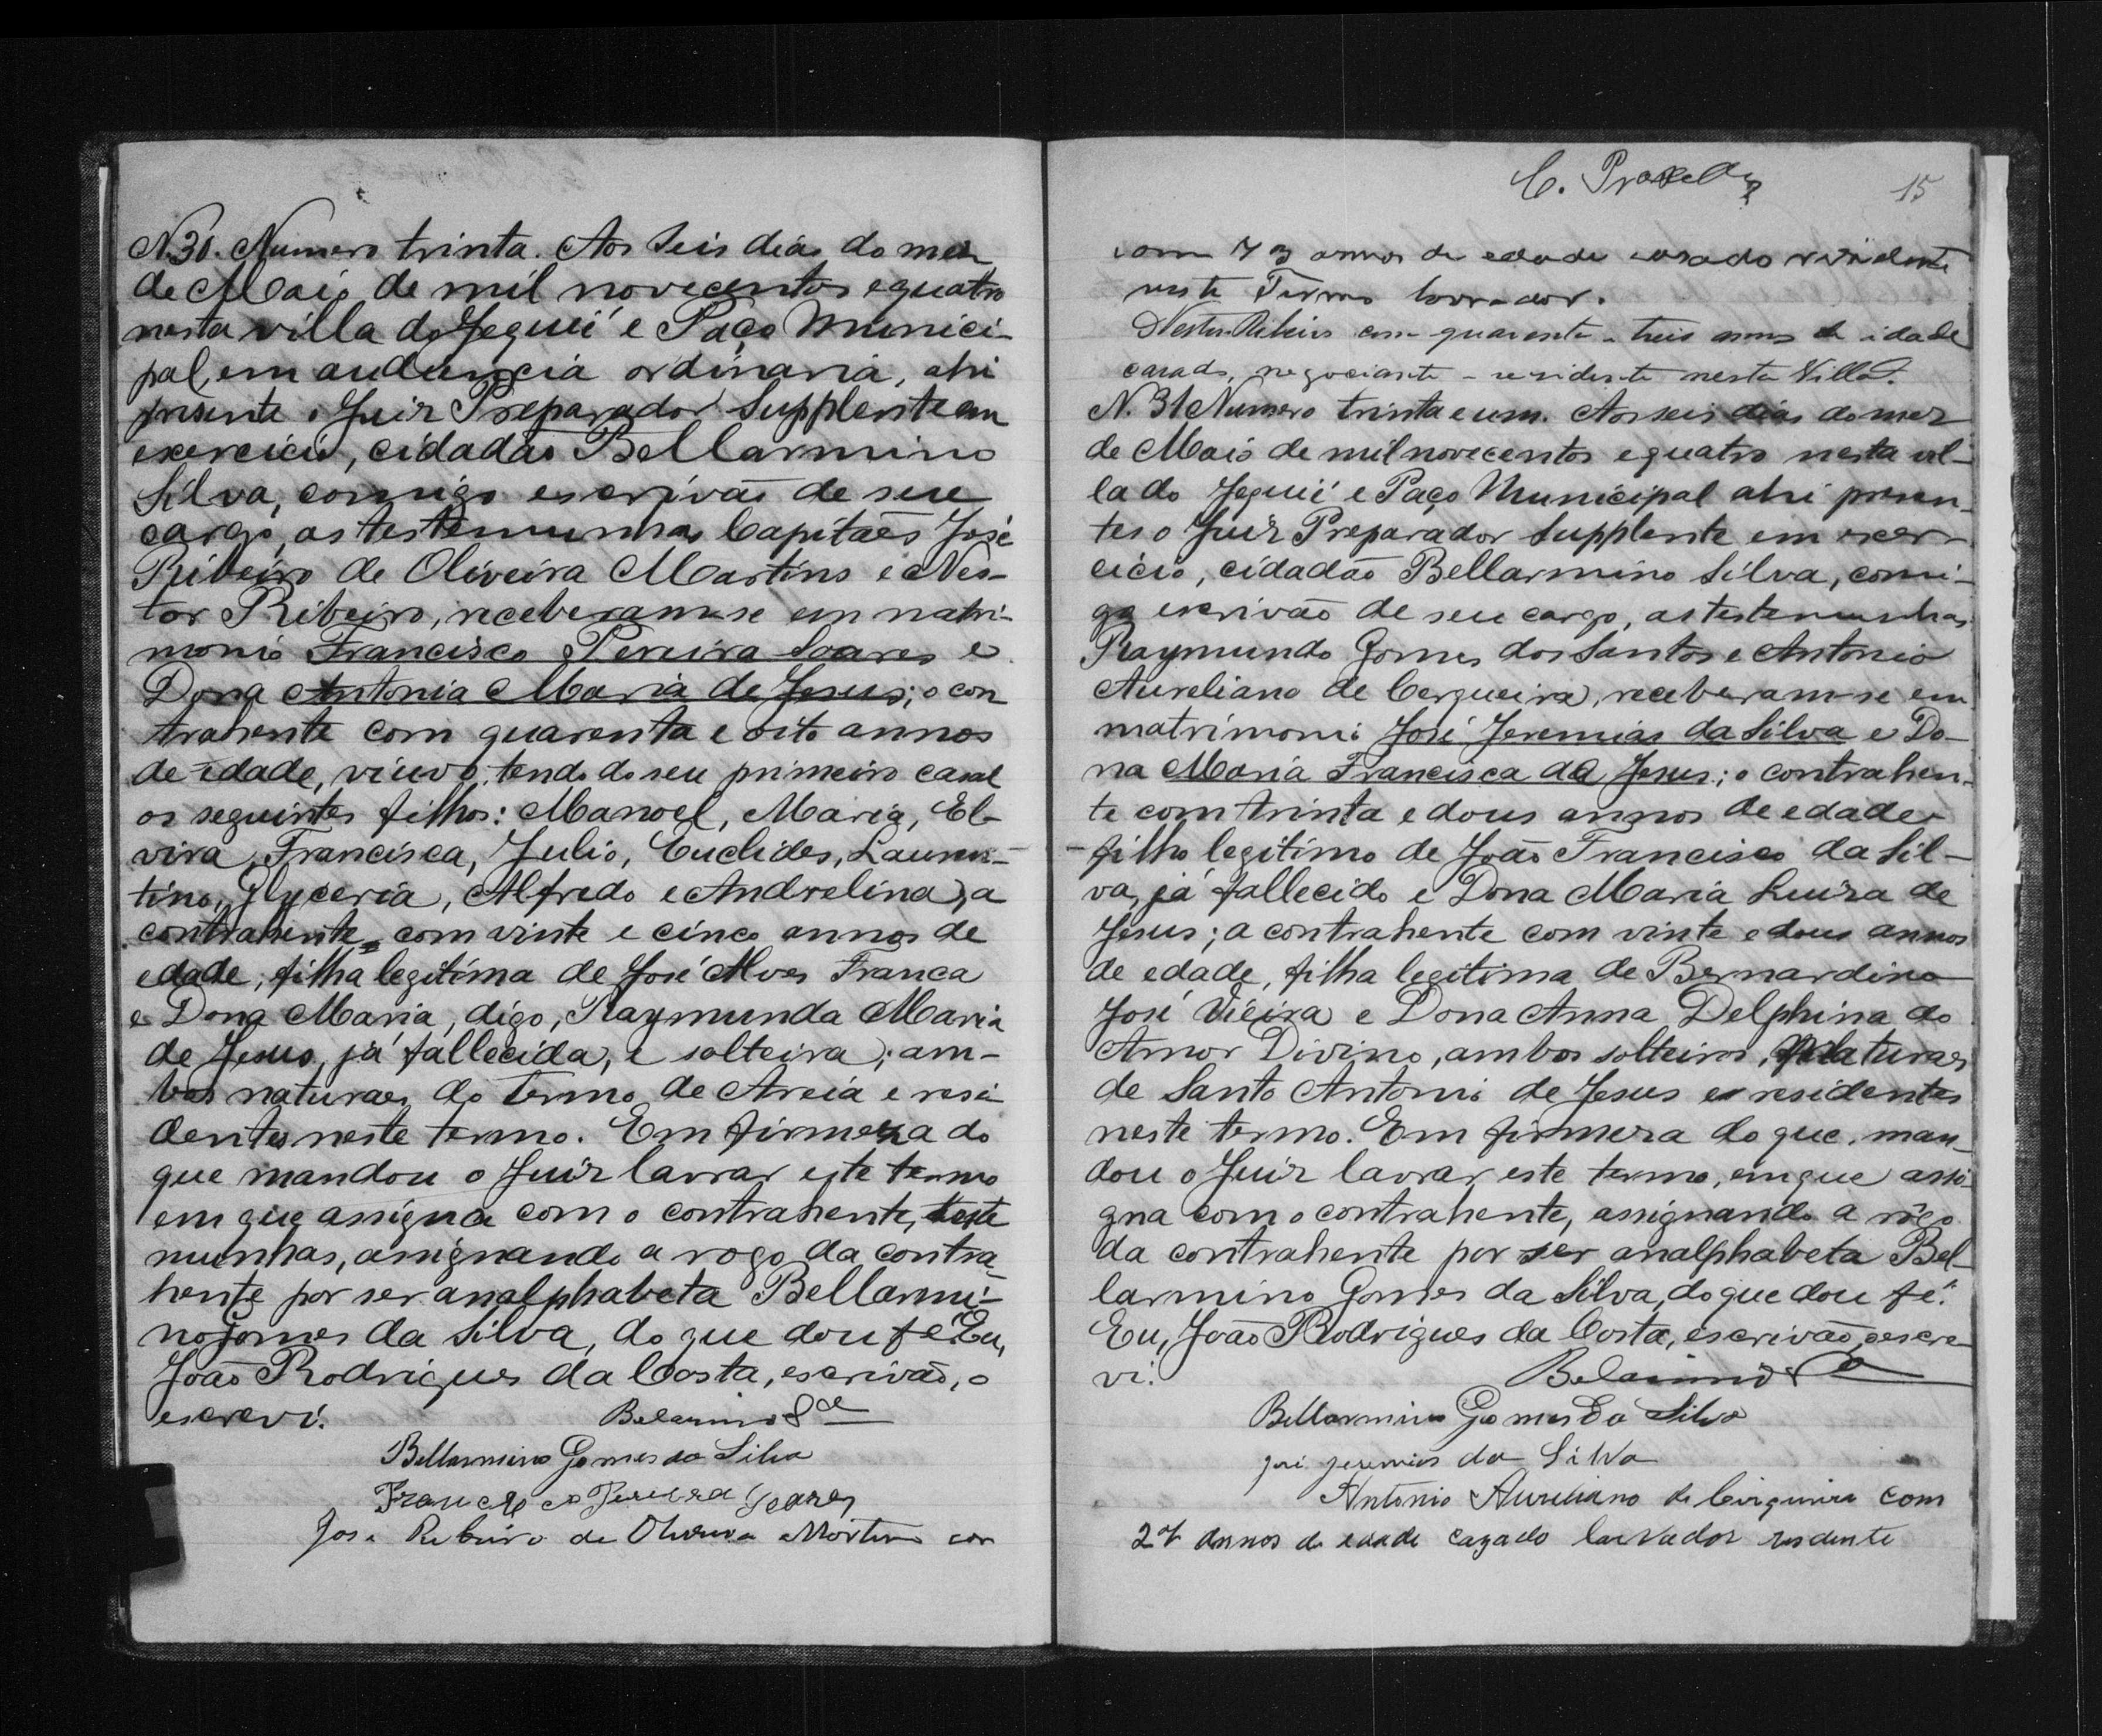 N. 30. Numero trinta. Aos seis dias do mez
de Maio de mil novecentos e quatro
nesta villa do Jequié e Paço Munici-
pal, em audiencia ordinaria, ahi
presente o Juiz Preparador Supplente em
exercicio, cidadão Bellarmino
Silva, comigo escrivão de seu
cargo, as testemunhas Capitães José
Ribeiro de Oliveira Martins e Nes-
tor Ribeiro, receberam-se em matri-
monio Francisco Pereira Soares e
Dona Antonia Maria de Jesus; o con
trahente com quarenta e oito annos
de edade, viuvo, tendo do seu primeiro casal
os seguintes filhos: Manoel, Maria, El-
vira, Francisca, Julio, Euclides, Lauren-
tino, Glyceria, Alfredo e Andrelina, a
contrahente com vinte e cinco annos de
edade, filha legitima de José Alves Franca
e Dona Maria, digo, Raymunda Maria
de Jesus, já fallecida, e solteira; am-
bos naturaes do termo de Areia e resi
dentes neste termo. Em firmeza do
que mandou o Juiz lavrar este termo
em que assigna com o contrahente, teste
munhas, assignando a rogo da contra-
hente por ser analphabeta Bellarmi-
no Gomes da Silva, do que dou fé. Eu,
João Rodrigues da Costa, escrivão, o
escrevi.
Belarmino Sa
Bellarmino Gomes da Silva
Francisco Pereira Soares
Jose Ribeiro de Oliveira Martins con
15
com 73 annos de edade casado residente
neste Termo lavrador.
Nestor Ribeiro com quarenta e treis annos de idade
casado, negociante e residente nesta Villa.
N. 31 Numero trinta e um. Aos seis dias do mez
de Maio de mil novecentos e quatro nesta vil-
la do Jequié e Paço Municipal ahi presen-
tes o Juiz Preparador Supplente em exer-
cicio, cidadão Bellarmino Silva, comi-
go escrivão de seu cargo, as testemunhas
Raymundo Gomes dos Santos e Antonio
Aureliano de Cerqueira, receberam-se em
matrimonio José Jeremias da Silva e Do-
na Maria Francisca de Jesus; o contrahen-
te com trinta e dous annos de edade
filho legitimo de João Francisco da Sil-
va, já fallecido e Dona Maria Luiza de
Jesus; a contrahente com vinte e dous annos
de edade, filha legitima de Bernardino
José Vieira e Dona Anna Delphina do
Amor Divino, ambos solteiros, naturaes
de Santo Antonio de Jesus e residentes
neste termo. Em firmeza do que, man-
dou o Juiz lavrar este termo, em que assi-
gna com o contrahente, assignando a rogo
da contrahente por ser analphabeta Bel-
larmino Gomes da Silva, do que dou fé.
Eu, João Rodrigues da Costa, escrivão, o escre-
vi.
Belarmino
Bellarmino Gomes da Silva
josé jeremias da Silva
Antonio Aureliano de Cirqueira com
27 annos de edade cazado lavrador residente